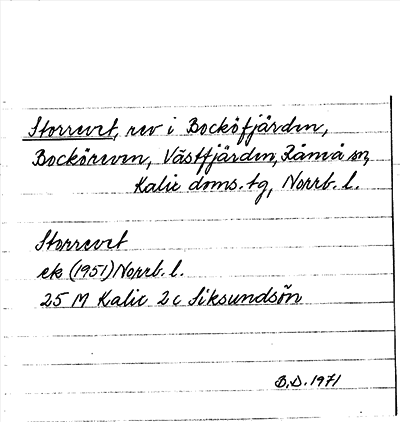 Storrevet, rev i Bocköfjärden,
Bocköreven, Västfjärden, Råneå sn,
Kalix doms. tg, Norrb. l.
Storrevet
ek (1951) Norrb. l.
25 M Kalix 2c Siksundsön
B.D. 1971